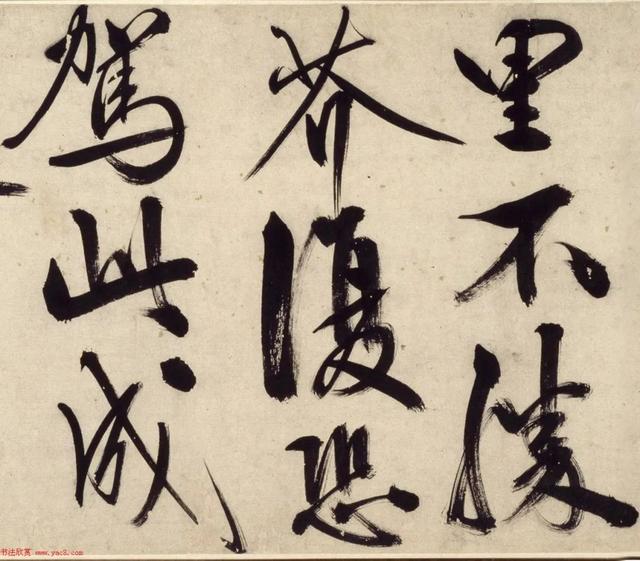 里不勝
芥復恐
駕此成
书法欣赏 www.yac8.com